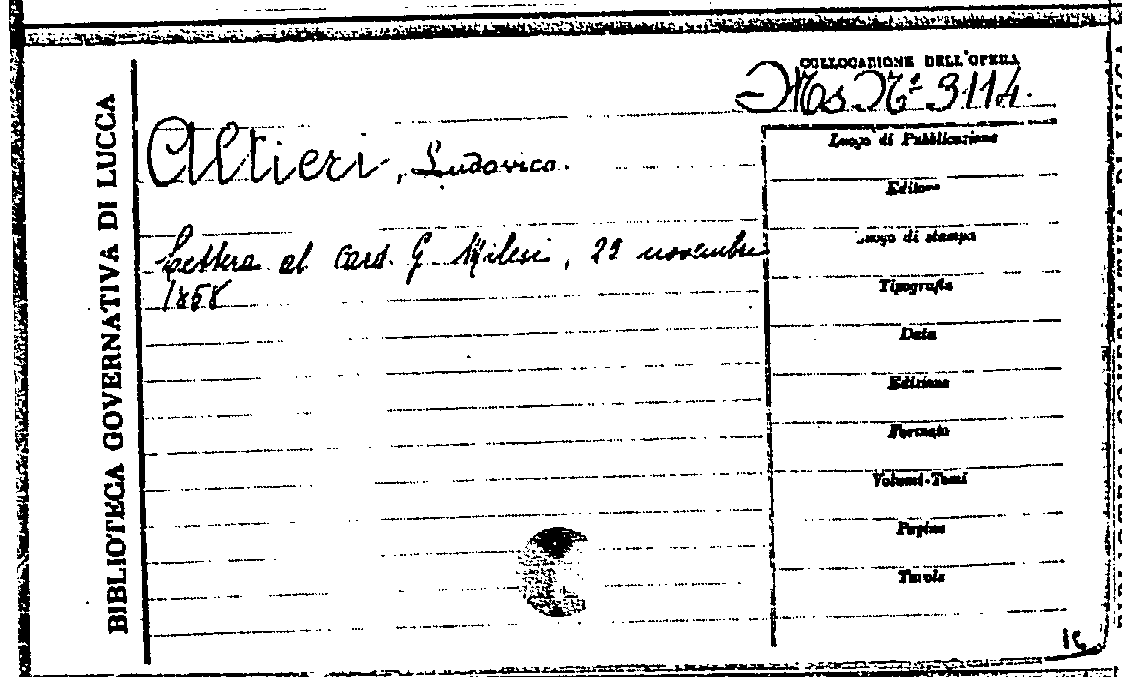 BIBLIOTECA GOVERNATIVA DI LUCCA
COLLOCAZIONE DELL'OPERA
Ms. N.º 3114.
Altieri, Ludovico.
Lettera al Card. G. Milesi, 22 novembre
1858
Luogo di Pubblicazione
Editore
Luogo di stampa
Tipografia
Data
Edizione
Formato
Volumi-Tomi
Pagine
Tavole